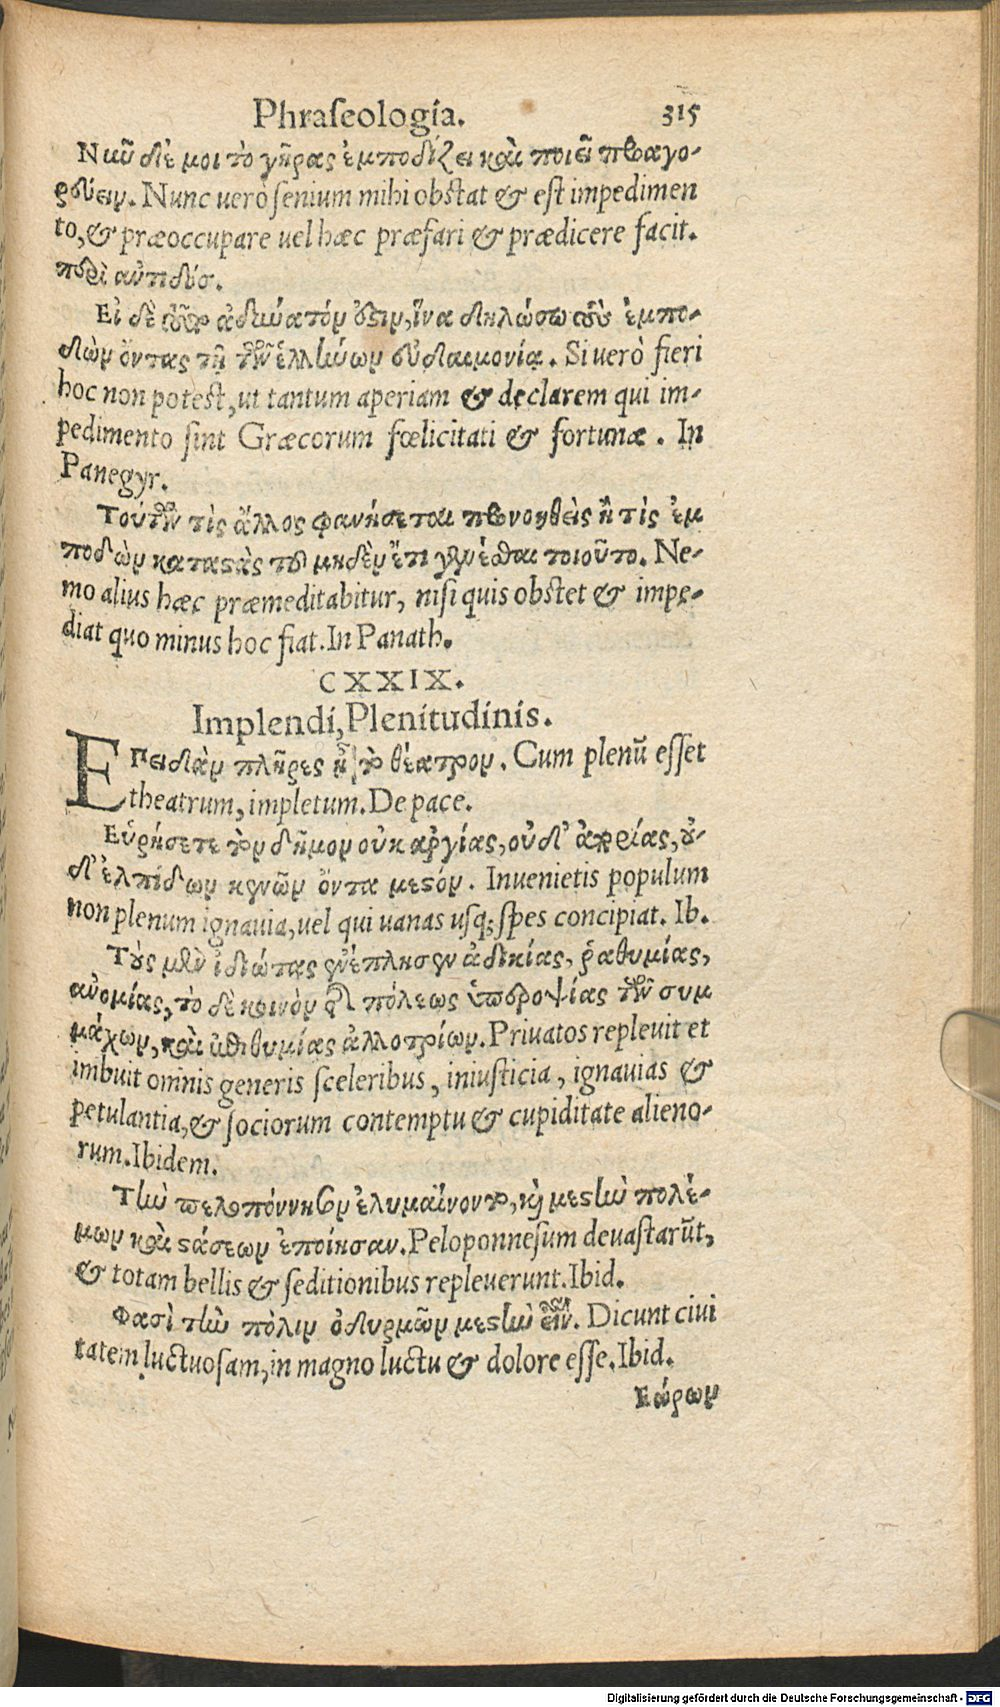 Phraſeologia. 315
Νιῦ δέ μοι τὸ γῆρας ἐμποδίζει καὶ ποιεῖ προαγο-
ρεύειν. Nunc uerò ſenium mihi obstat & eſt impedimen
to, & præoccupare uel hæc præfari & prædicere facit.
περὶ ἀντιδόσ.
Εἰ δὲ ἀδιώατόν ὅξιν, ἵνα δηλώσω τοὺς ἐμπο-
δὼν ὄντας τῇ τῶν ἑλλήνων εὐδαιμονίᾳ. Si uerò fieri
hoc non poteſt, ut tantum aperiam & declarem qui im-
pedimento ſint Græcorum fœlicitati & fortunæ. In
Panegyr.
Τούτων τὶς ἄλλος φανήσεται προνοηθεὶς ἢ τὶς ἐμ
ποδὼν καταστὰς τοῦ μηδὲν ἔτι γενέσθαι τοιοῦτο. Ne-
mo alius hæc præmeditabitur, niſi quis obſtet & impe-
diat quo minus hoc fiat. In Panath.
CXXIX.
Implendi, Plenitudinis.
Επειδὰν πλῆρες ᾖ τὸ θέατρον. Cum plenū eſſet
theatrum, impletum. De pace.
Εὑρήσετε τὸν δῆμον οὐκ ἀργίας, οὐδ' ἀπορίας, οὐ-
δ' ἐλπίδων κενῶν ὄντα μεστόν. Inuenietis populum
non plenum ignauia, uel qui uanas uſq; ſpes concipiat. Ib.
Τοὺς μὲν ἰδιώτας ἐνέπλησεν ἀδικίας, ῥαθυμίας,
ἀνομίας, τὸ δὲ κοινὸν τῆς πόλεως ὑπεροψίας τῶν συμ
μάχων, καὶ ἐπιθυμίας ἀλλοτρίων. Priuatos repleuit et
imbuit omnis generis ſceleribus, iniuſticia, ignauias &
petulantia, & ſociorum contemptu & cupiditate alieno-
rum. Ibidem.
Τὴν πελοπόννησον ἐλυμαίνοντο, καὶ μεστὴν πολέ-
μων καὶ στάσεων ἐποίησαν. Peloponneſum deuaſtarūt,
& totam bellis & ſeditionibus repleuerunt. Ibid.
Φασὶ τὴν πόλιν ὀδυρμῶν μεστὴν εἶναι. Dicunt ciui
tatem luctuoſam, in magno luctu & dolore eſſe. Ibid.
Εώρων
Digitalisierung gefördert durch die Deutsche Forschungsgemeinschaft - DFG